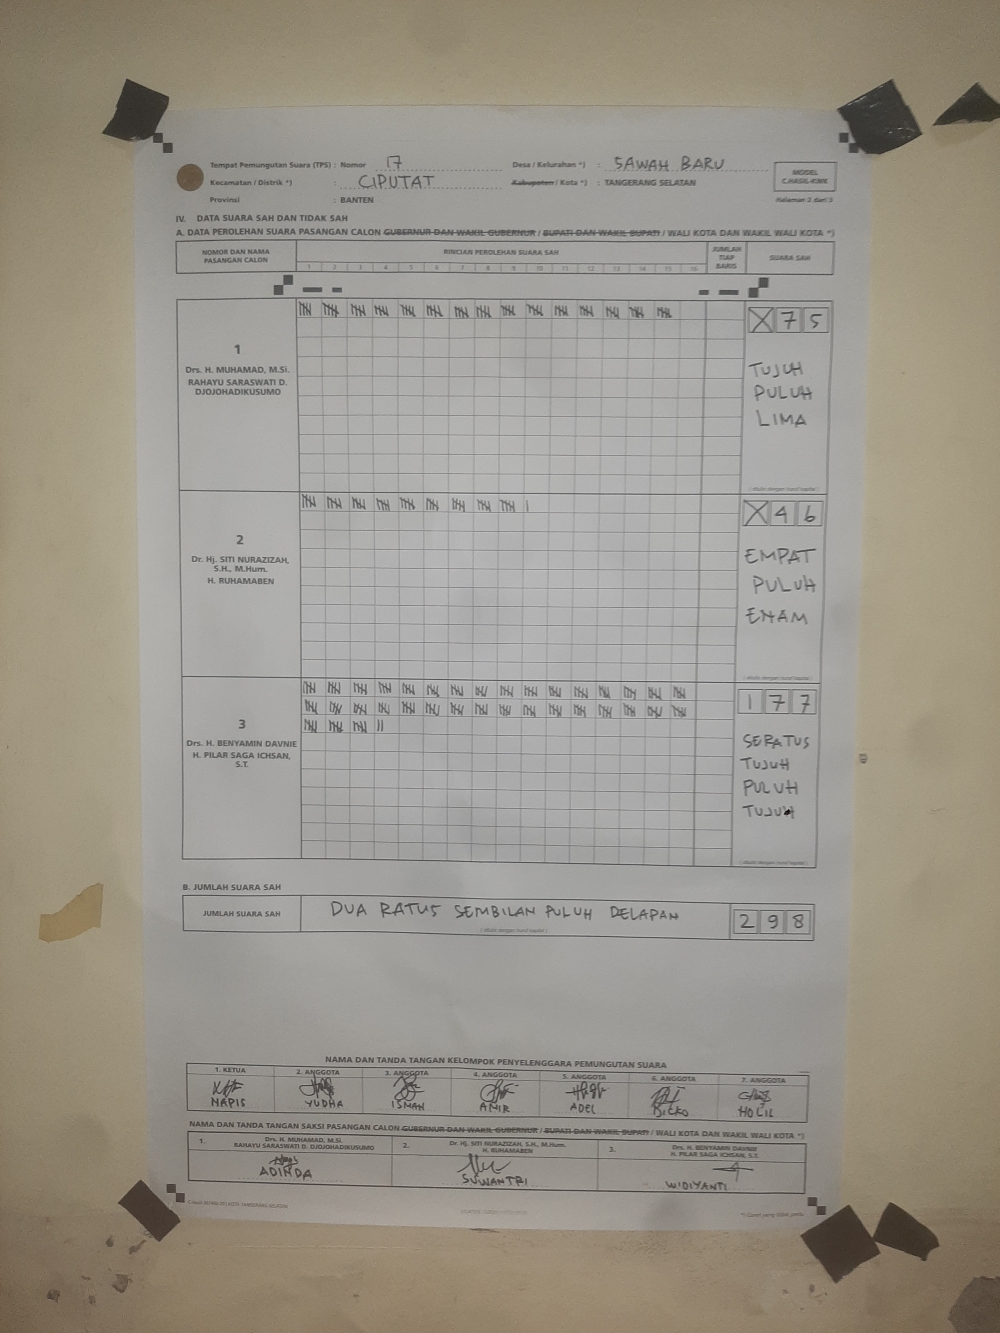 Tempat Pemungutan Suara (TPS) : Nomor 17 Desa / Kelurahan *) : SAWAH BARU
MODEL
C.HASIL-KWK
Kecamatan / Distrik *) : CIPUTAT Kabupaten / Kota *) : TANGERANG SELATAN
Provinsi : BANTEN
Halaman 2 dari 3
IV. DATA SUARA SAH DAN TIDAK SAH
A. DATA PEROLEHAN SUARA PASANGAN CALON GUBERNUR DAN WAKIL GUBERNUR / BUPATI DAN WAKIL BUPATI / WALI KOTA DAN WAKIL WALI KOTA *)
NOMOR DAN NAMA
PASANGAN CALON
RINCIAN PEROLEHAN SUARA SAH
1 2 3 4 5 6 7 8 9 10 11 12 13 14 15 16
JUMLAH
TIAP
BARIS
SUARA SAH
1
Drs. H. MUHAMAD, M.Si.
RAHAYU SARASWATI D.
DJOJOHADIKUSUMO
X 7 5
TUJUH
PULUH
LIMA
( ditulis dengan huruf kapital )
2
Dr. Hj. SITI NURAZIZAH,
S.H., M.Hum.
H. RUHAMABEN
X 4 6
EMPAT
PULUH
ENAM
( ditulis dengan huruf kapital )
3
Drs. H. BENYAMIN DAVNIE
H. PILAR SAGA ICHSAN,
S.T.
1 7 7
SERATUS
TUJUH
PULUH
TUJUH
( ditulis dengan huruf kapital )
B. JUMLAH SUARA SAH
JUMLAH SUARA SAH DUA RATUS SEMBILAN PULUH DELAPAN 2 9 8
( ditulis dengan huruf kapital )
NAMA DAN TANDA TANGAN KELOMPOK PENYELENGGARA PEMUNGUTAN SUARA
1. KETUA 2. ANGGOTA 3. ANGGOTA 4. ANGGOTA 5. ANGGOTA 6. ANGGOTA 7. ANGGOTA
NAPIS YUDHA ISMAN AMIR ADEL RICKO HOLIL
NAMA DAN TANDA TANGAN SAKSI PASANGAN CALON GUBERNUR DAN WAKIL GUBERNUR / BUPATI DAN WAKIL BUPATI / WALI KOTA DAN WAKIL WALI KOTA *)
1. Drs. H. MUHAMAD, M.Si.
RAHAYU SARASWATI D. DJOJOHADIKUSUMO
ADINDA
2. Dr. Hj. SITI NURAZIZAH, S.H., M.Hum.
H. RUHAMABEN
SUWANTRI
3. Drs. H. BENYAMIN DAVNIE
H. PILAR SAGA ICHSAN, S.T.
WIDIYANTI
*) Coret yang tidak perlu